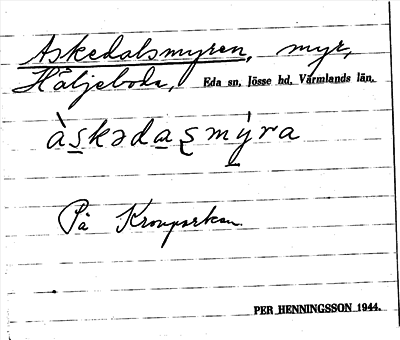 Askedalsmyren, myr,
Häljeboda, Eda sn, Jösse hd, Värmlands län.
àskədaʂmýra
På Kronparken
PER HENNINGSSON 1944.